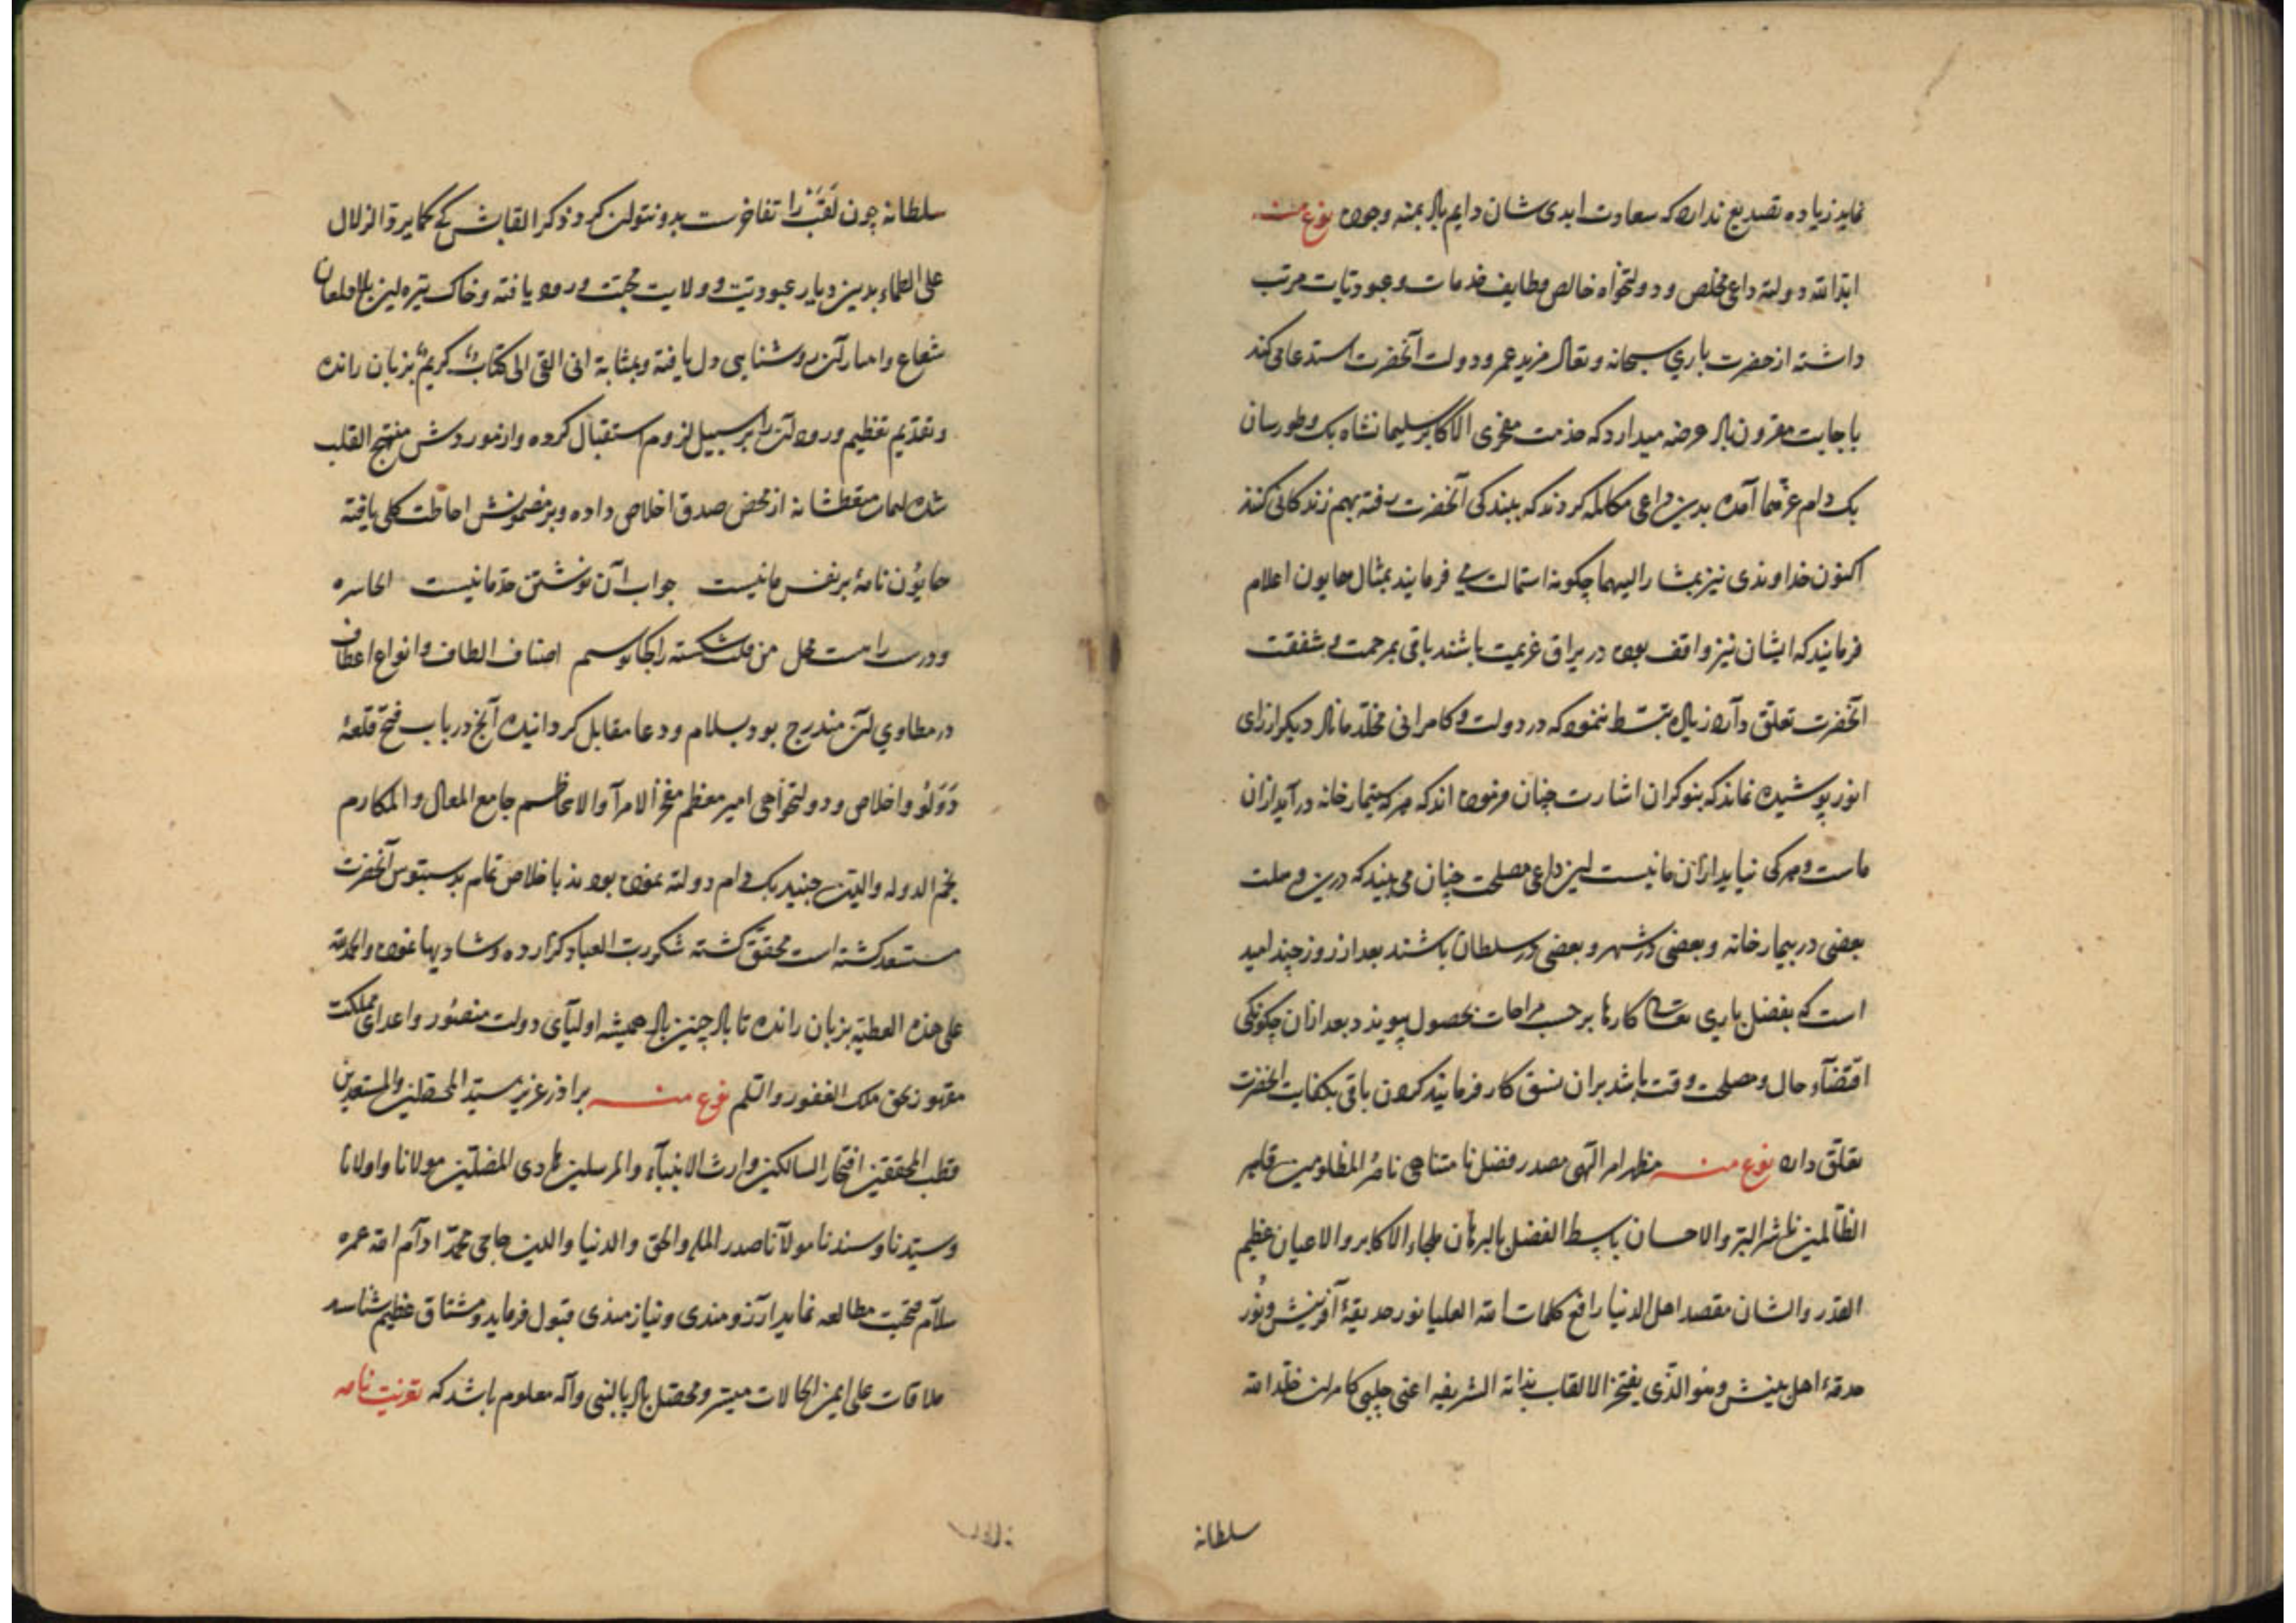 نماید زیاده تصدیع نداد که سعادت ابدی شان دایم باد بمنه وجوده نوع منه
ابد الله دولته داعی مخلص و دولتخواه خالص وظایف خدمات و عبودیات مرتب
داشته از حضرت باری سبحانه وتعالی مزید عمر و دولت آنحضرت استدعا می کند
باجابت مقرون باد عرضه میدارد که خدمت مفخری الاکابر سلیمانشاه بک وطورسان
بک دام عزهما آمده بدین داعی مکالمه کردند که ببندکی آنحضرت رفته بهم زندکانی کنند
اکنون خداوندی نیز بمشار الیهما چکونه استمالت می فرمایند بمثال همایون اعلام
فرمایند که ایشان نیز واقف بوده در یراق عزیمت باشند باقی بمرحمت و شفقت
آنحضرت تعلق دارد زیاده تبسط ننمود که در دولت و کامرانی مخلد ماناد دیکر ازرای
انور پوشیده نماند که بنوکران اشارت چنان فرموده اند که هرکه بتیمارخانه درآید ازان
ماست و هرکی نیاید ازان ما نیست این داعی مصلحت چنان می بیند که درین
بعضی در بیمارخانه و بعضی در شهر و بعضی در سلطان باشند بعد از روز چند امید
است که بفضل باری تعالی کارها بر حسب مرادات بحصول پیوندد بعد ازان چکونکی
اقتضاء حال و مصلحت وقت باشد بران نسق کار فرمایند کردن باقی بکفایت آنحضرت
تعلق دارد نوع منه مظهر امر الهی مصدر فضل نا متناهی ناصر المظلومین قاهر
الظالمین ناشر البر والاحسان باسط الفضل بالبرهان ملجاء الاکابر والاعیان عظیم
القدر والشان مقصد اهل الدنیا رافع کلمات الله العلیا نور حدیقۀ آفرینش ونور
حدقۀ اهل بینش وهو الذی یفتخر الالقاب بذاته الشریفه اعنی چلبی کامران خلد الله
سلطانه
سلطانه چون لقب را تفاخرست بدو نتوان کرد ذکر القابش که کما یروق الزلال
علی الظماء بدین دیار عبودیت و ولایت محبت ورود یافته وخاک تیره این بلا
شعاع و آن روشنایی دل یافته وبمثابۀ انی القی الی کتاب کریم بزبان رانده
وتقدیم تعظیم ورود آن را بر سبیل لزوم استقبال کرده واز موردش مبتهج القلب
شده از محض صدق اخلاص داده و بر مضمونش احاطت کلی یافته
همایون نامۀ بر نفس مانیست جواب آن نوشتن حد مانیست
من شکسته را کجا اصناف الطاف و انواع اعطاف
در مطاوی آن مندرج بود بسلام ودعا مقابل کردانیده آنچ در باب فتح قلعۀ
دولو و اخلاص و دولتخواهی امیر معظم مفخر الامرآ والاعاظم جامع المعالی والمکارم
نجم الدوله والدین جنید بک دام دولته نموده بودند با خلاص تمام بدستبوس آنحضرت
مستعد کشته است محقق کشته شکر رب العباد کزارده وشادیها نموده والحمد لله
علی هذه العطیة بزبان رانده تا باد چنین باد همیشه اولیآی دولت منصور و اعدای مملکت
مقهور بحق ملک الغفور والسلم نوع منه برادر عزیز سید المحصلین والمستعدین
قطب المحققین افتخار السالکین وارث الانبیآء والمرسلین هادی المضلین مولانا واولانا
وسیدنا وسندنا مولانا صدر المله والحق والدنیا والدین حاجی محمد ادام الله عمره
سلام محبت مطالعه نماید آرزومندی ونیازمندی قبول فرماید ومشتاق عظیم شناسد
ملاقات علی ایمن الحالات میسر ومحصل باد بالنبی وآله معلوم باشد که تعزیت نامه